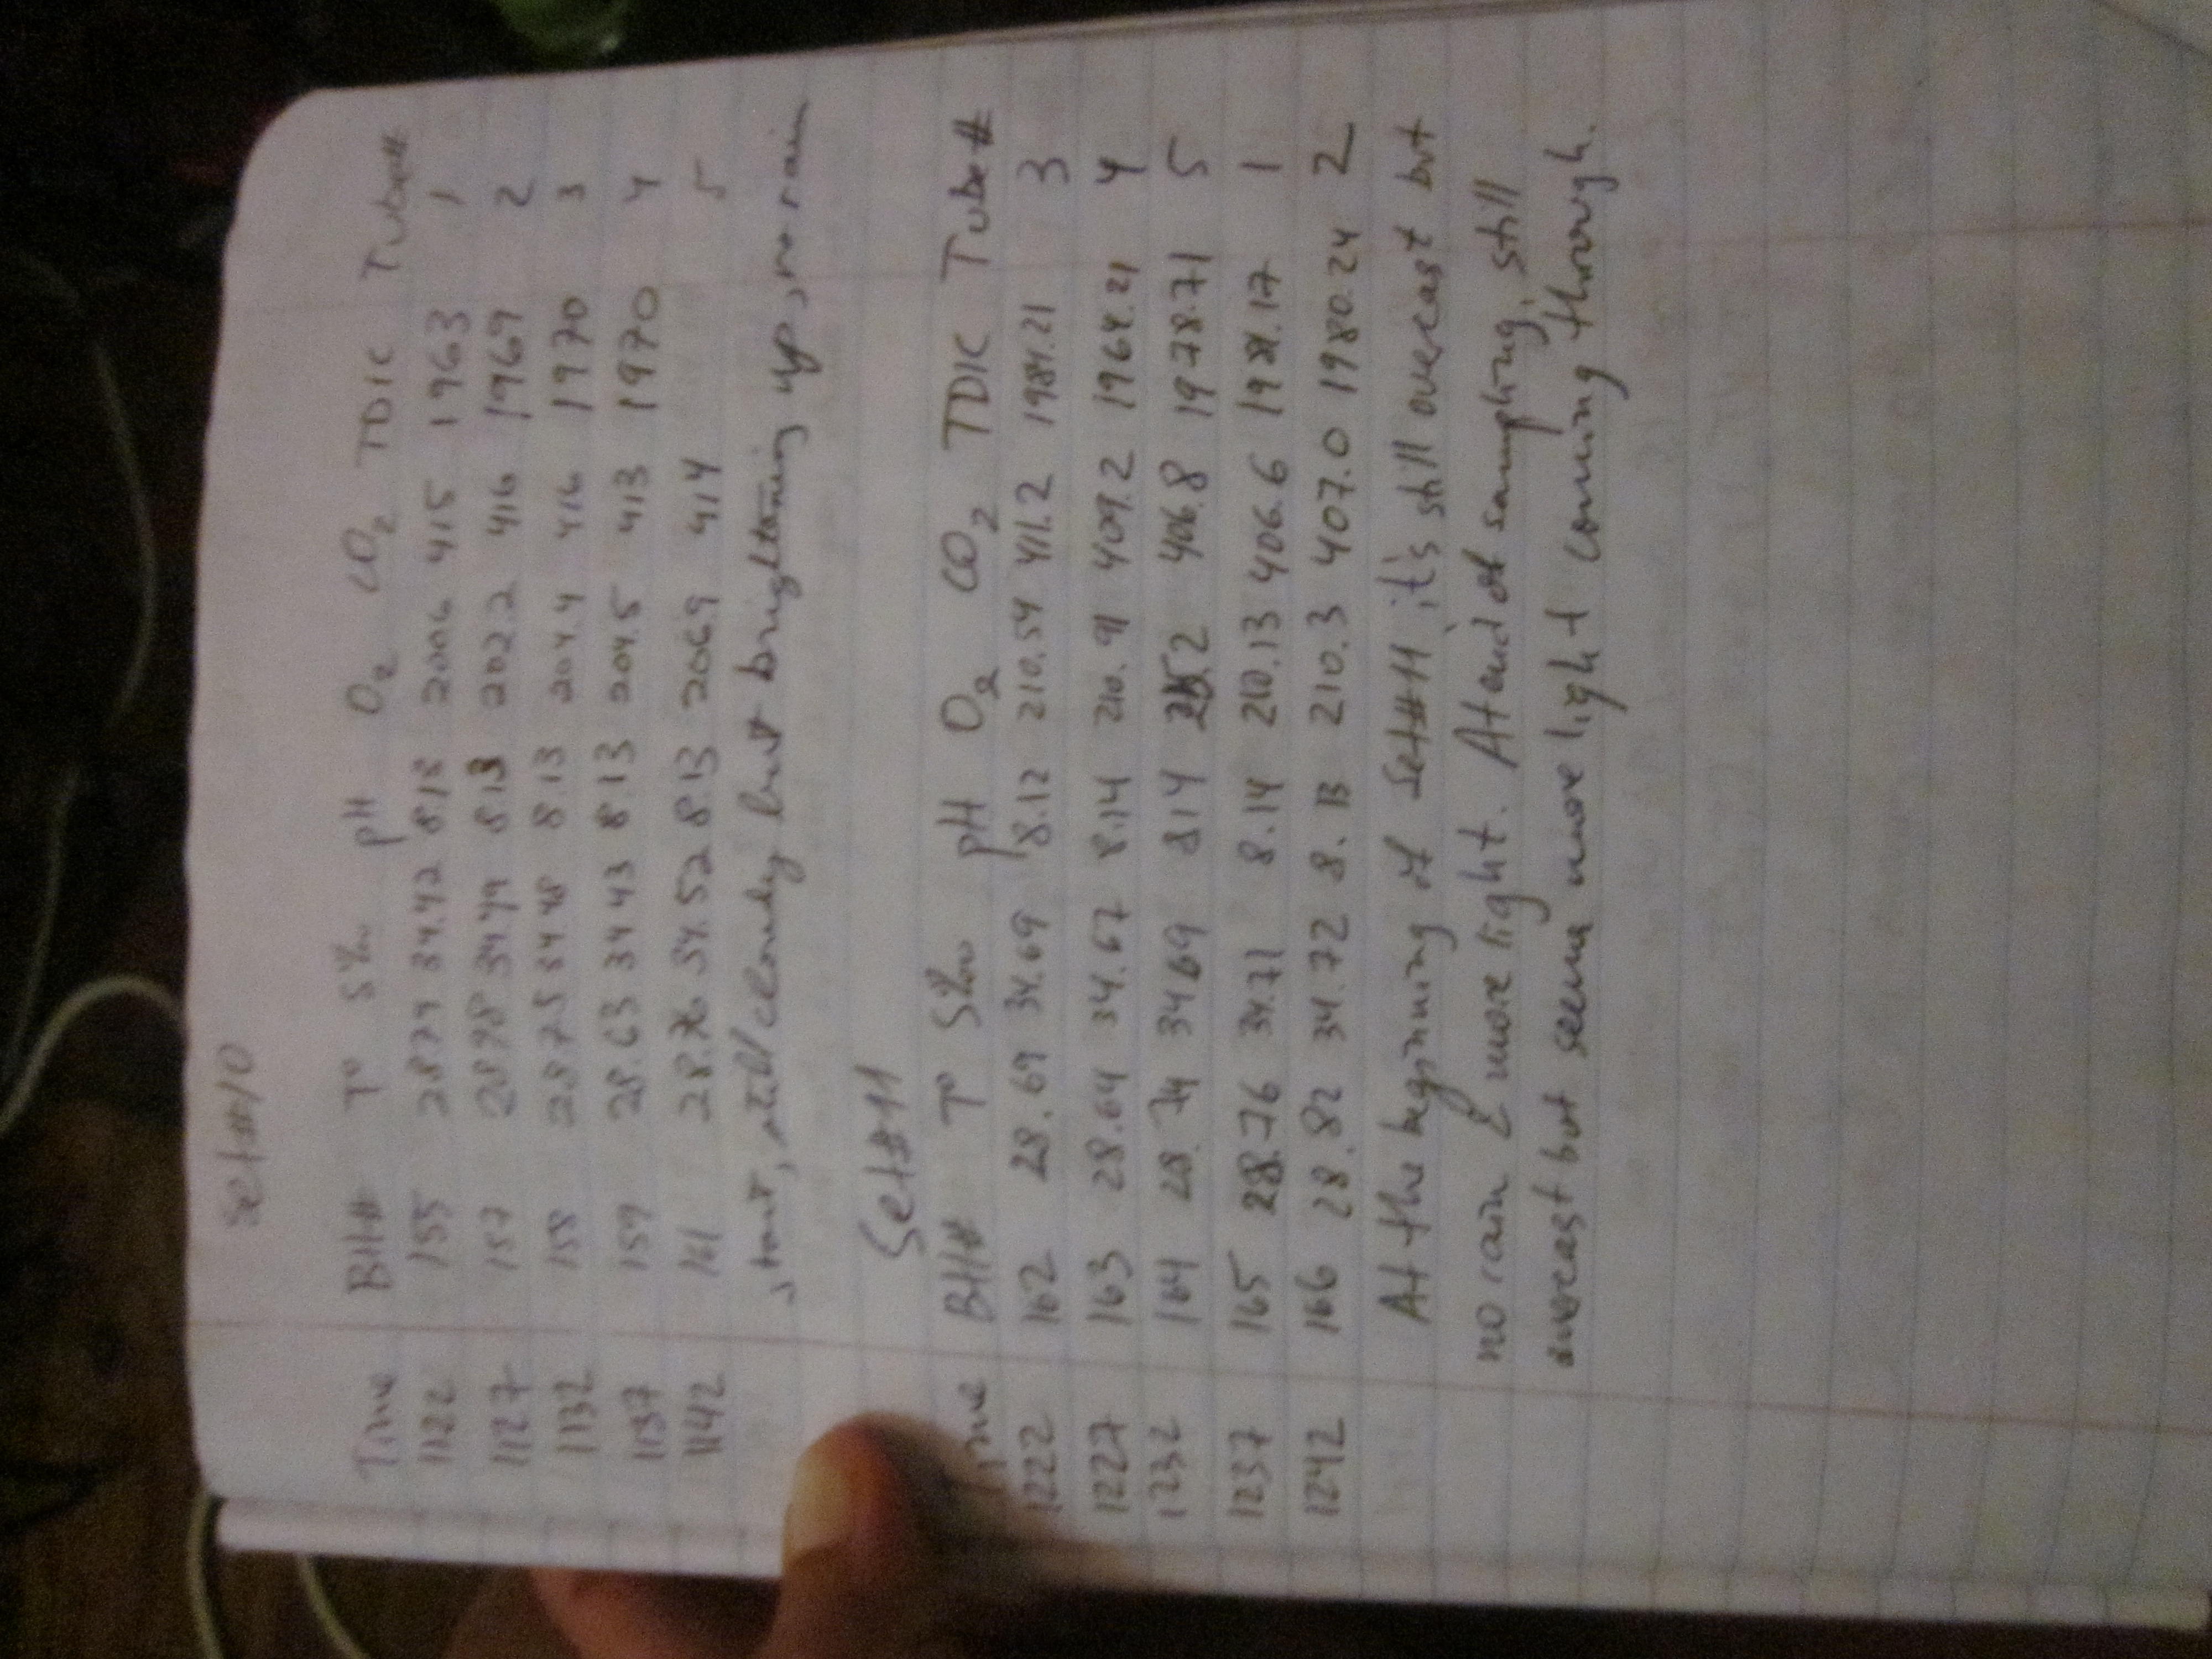 Set#10
Time BH# T° S‰ pH O2 CO2 TDIC Tube#
1122 155 28.79 34.42 8.13 200.6 415 1963 1
1127 157 28.98 34.44 8.13 202.2 416 1969 2
1132 158 28.75 34.48 8.13 204.4 416 1970 3
1137 159 28.63 34.43 8.13 204.5 413 1970 4
1142 161 28.76 34.52 8.13 206.9 414 5
start, still cloudy but brightening up, no rain
Set#11
Time BH# T° S‰ pH O2 CO2 TDIC Tube#
1222 162 28.69 34.69 8.12 210.54 411.2 1984.21 3
1227 163 28.64 34.67 8.14 210.91 409.2 1964.21 4
1232 164 28.74 34.69 8.14 406.8 1978.71 5
1237 165 28.76 34.71 8.14 210.13 406.6 1981.17 1
1242 166 28.82 34.72 8.13 210.3 407.0 1980.24 2
At the beginning of Set#11 it's still overcast but
no rain & more light. At end of sampling, still
overcast but seems more light coming through.